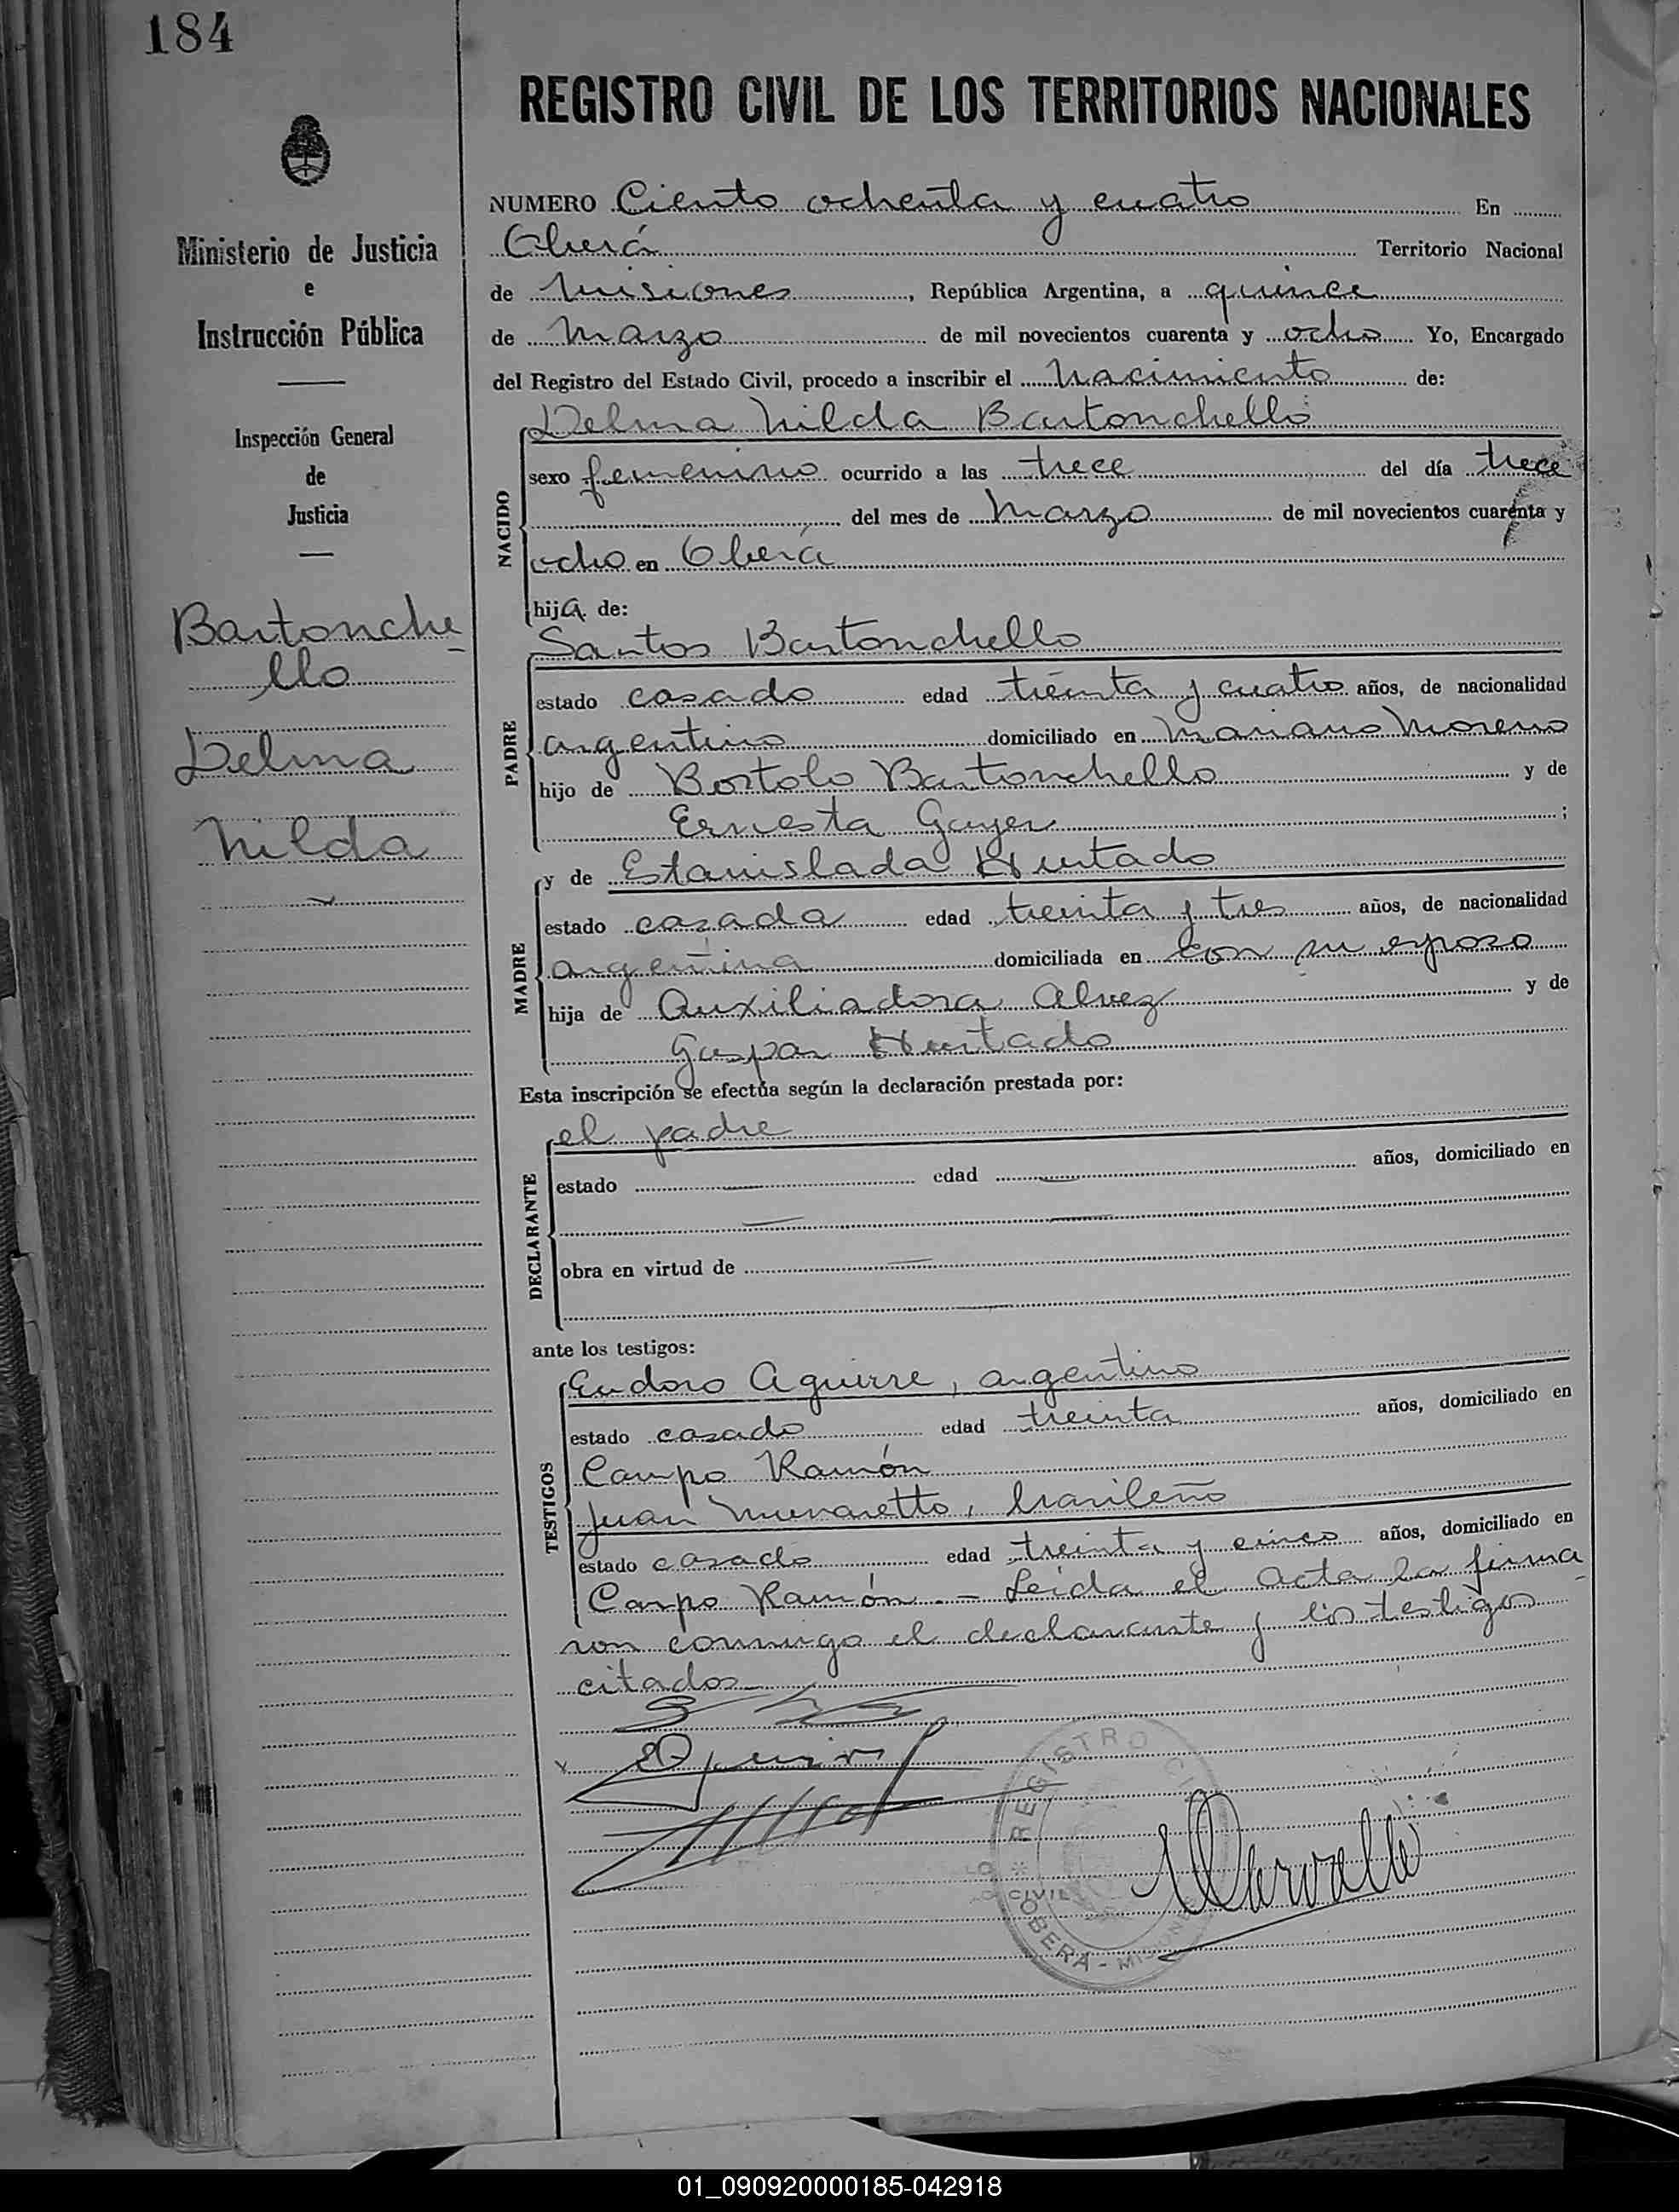 184
REGISTRO CIVIL DE LOS TERRITORIOS NACIONALES
Ministerio de Justicia
e
Instrucción Pública
Inspección General
de
Justicia
Bartonche
llo
Delma
Nilda
NUMERO Ciento ochenta y cuatro En
Oberá Territorio Nacional
de Misiones, República Argentina, a quince
de Marzo de mil novecientos cuarenta y ocho Yo, Encargado
del Registro del Estado Civil, procedo a inscribir el nacimiento de:
Delma Nilda Bartonchello
NACIDO
sexo femenino ocurrido a las trece del día trece
del mes de Marzo de mil novecientos cuarenta y
ocho en Oberá
hija de:
Santos Bartonchello
PADRE
estado casado edad treinta y cuatro años, de nacionalidad
argentino domiciliado en Mariano Moreno
hijo de Bortolo Bartonchello y de
Ernesta Gayer ;
y de Estanislada Hurtado
MADRE
estado casada edad treinta y tres años, de nacionalidad
argentina domiciliada en con su esposo
hija de Auxiliadora Alvez y de
Gaspar Hurtado
Esta inscripción se efectúa según la declaración prestada por:
el padre
DECLARANTE
estado — edad — años, domiciliado en
— —
obra en virtud de —
—
ante los testigos:
Eudoro Aguirre, argentino
TESTIGOS
estado casado edad treinta años, domiciliado en
Campo Ramón
Juan Munaretto, brasileño
estado casado edad treinta y cinco años, domiciliado en
Campo Ramón. - Leida el acta la firma
ron conmigo el declarante y los testigos
citados
REGISTRO CIVIL
OBERA - MISIONES
01_090920000185-042918